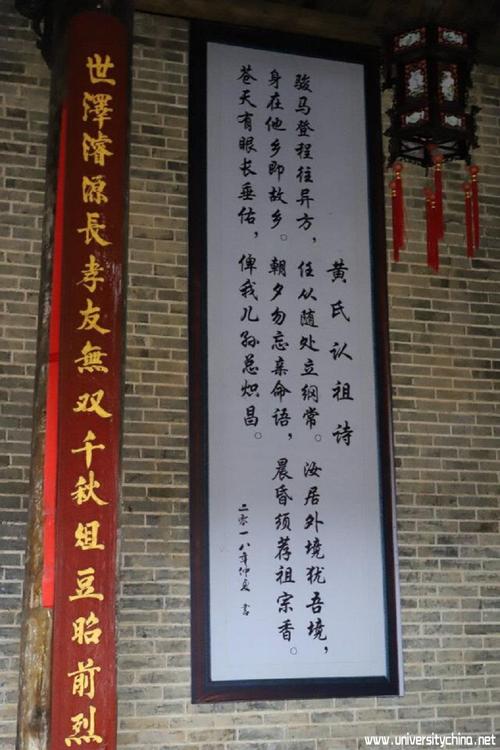 黄氏认祖诗
骏马登程往异方，任从随处立纲常。汝居外境犹吾境，
身在他乡即故乡。朝夕勿忘亲命语，晨昏须荐祖宗香。
苍天有眼长垂佑，俾我儿孙总炽昌。
二零一八年仲夏 书
世澤濬源長孝友無双千秋俎豆昭前烈
www.universitychina.net